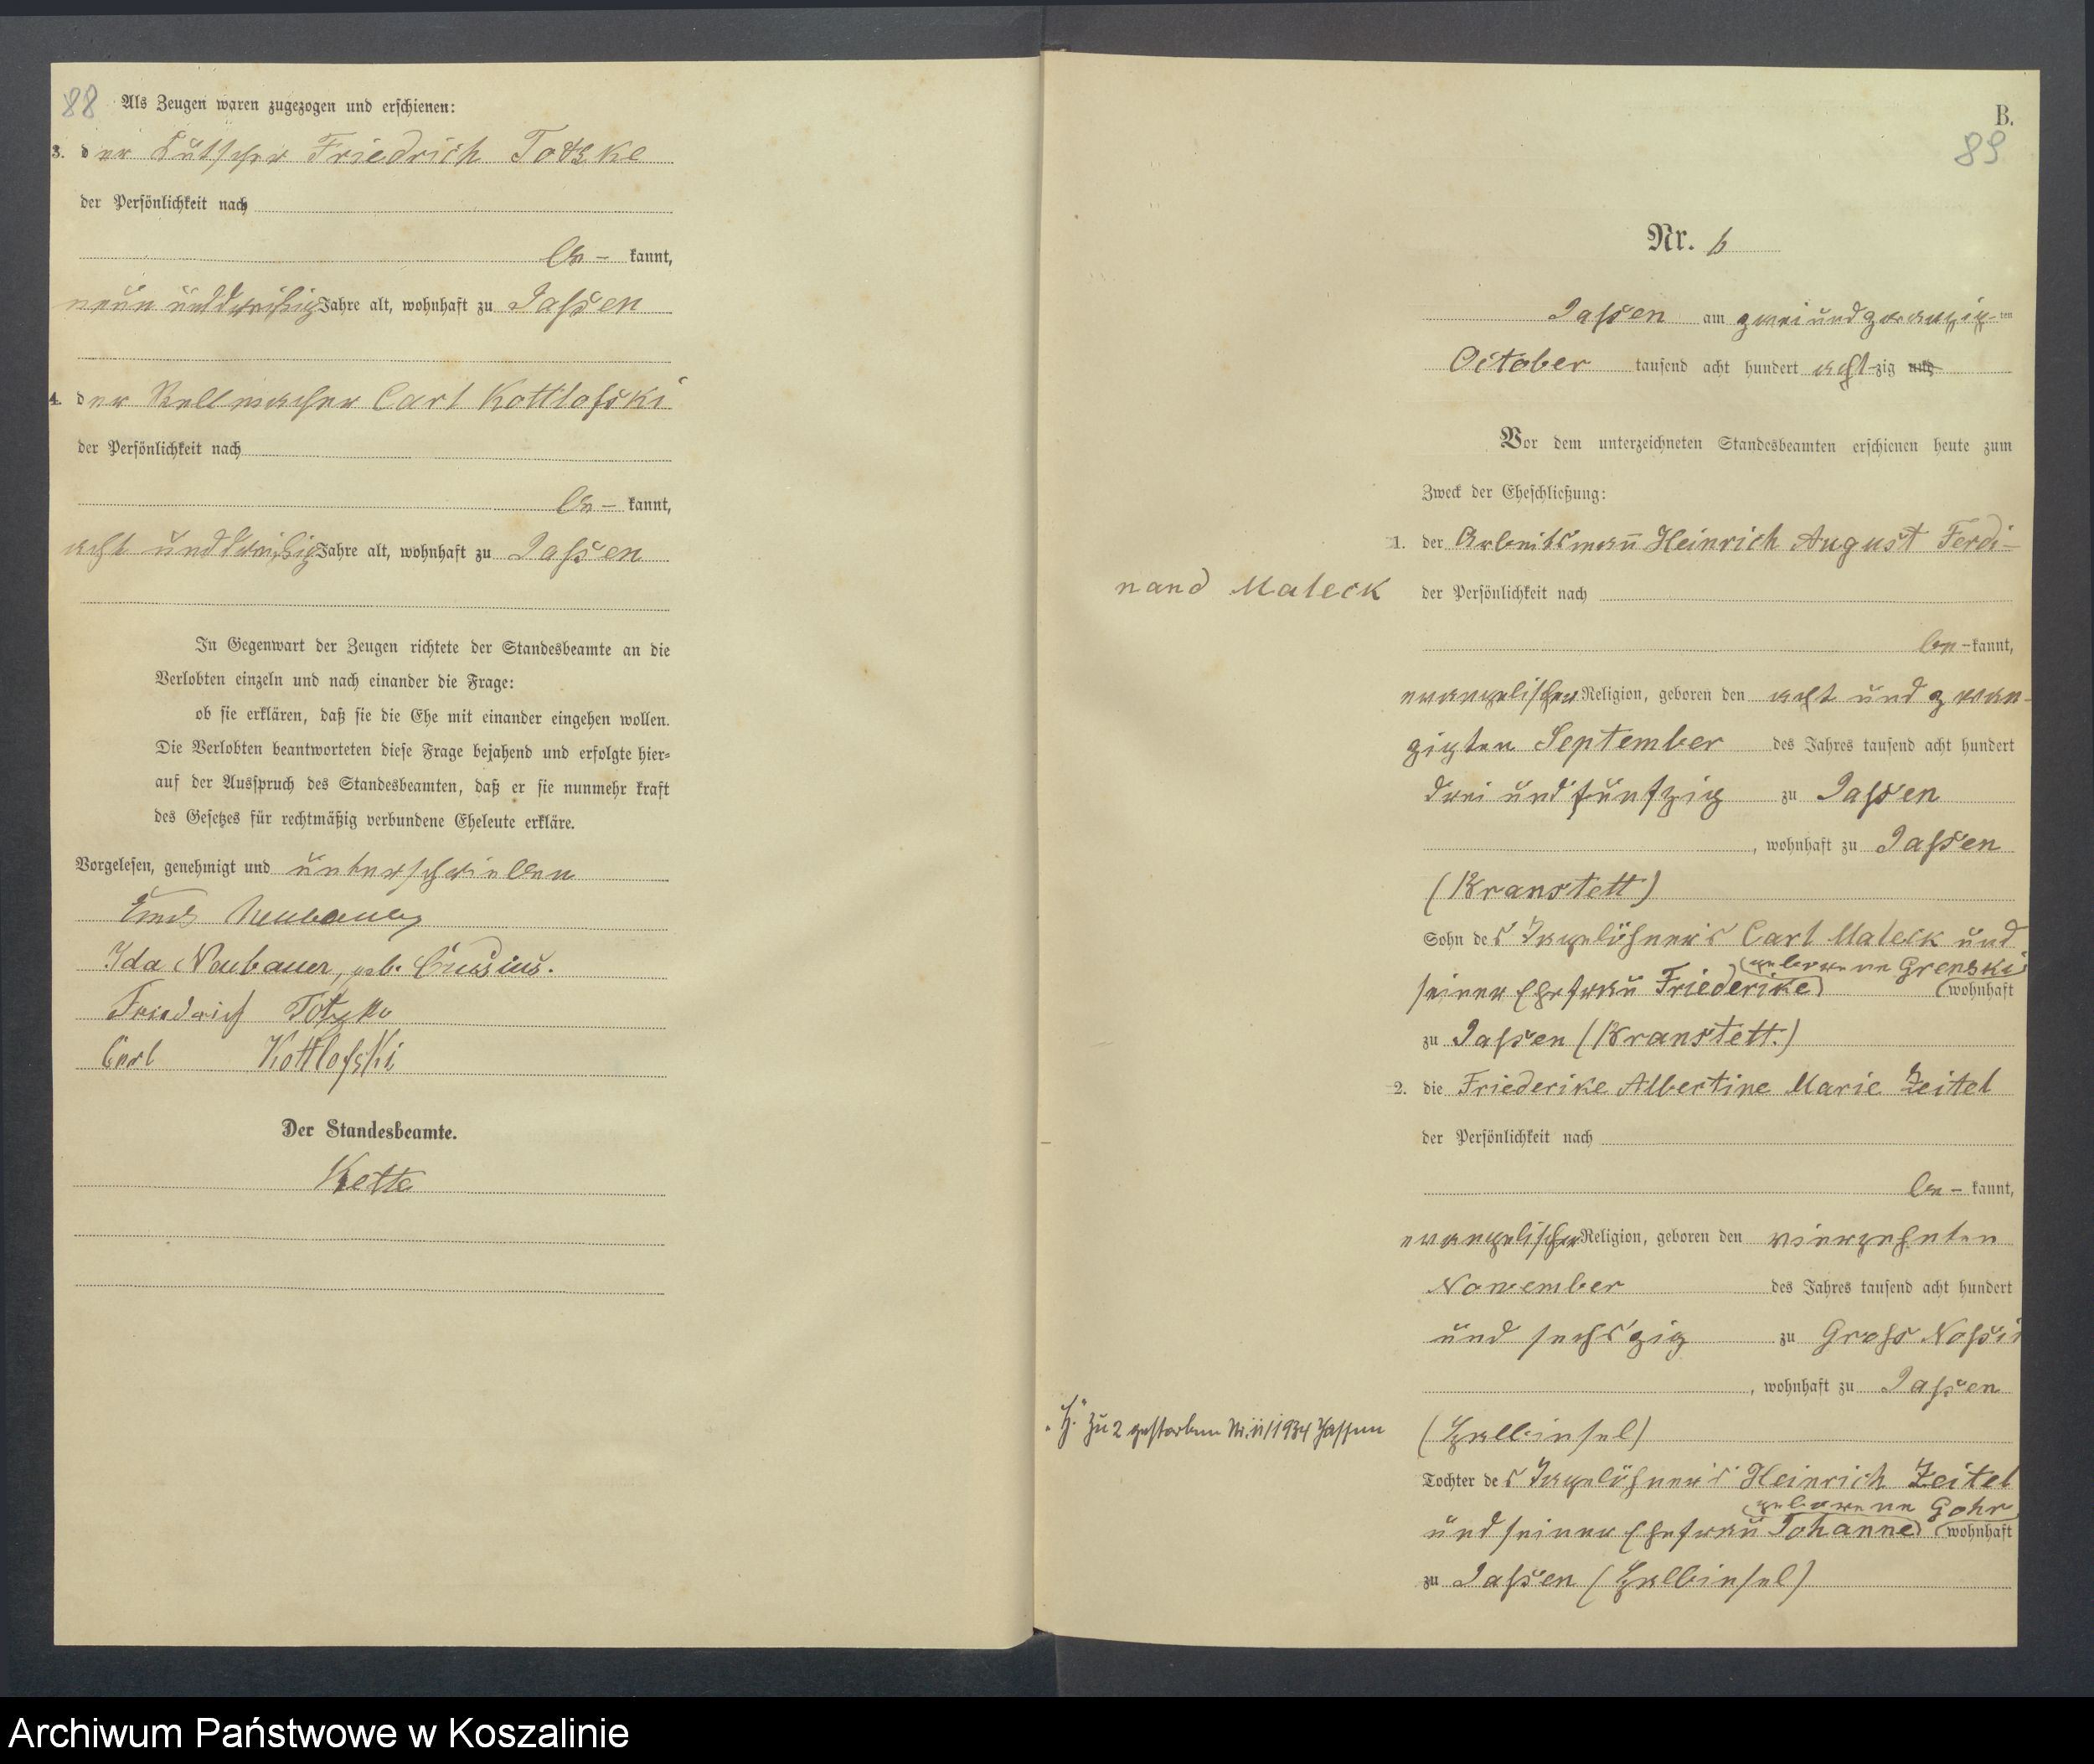 88
Als Zeugen waren zugezogen und erschienen:
3. der Kutscher Friedrich Totzke
der Persönlichkeit nach
be- kannt,
neun und dreißig Jahre alt, wohnhaft zu Jassen
4. der Stellmacher Carl Kottlofski
der Persönlichkeit nach
be- kannt,
acht und dreißig Jahre alt, wohnhaft zu Jassen
In Gegenwart der Zeugen richtete der Standesbeamte an die
Verlobten einzeln und nach einander die Frage:
ob sie erklären, daß sie die Ehe mit einander eingehen wollen.
Die Verlobten beantworteten diese Frage bejahend und erfolgte hier-
auf der Ausspruch des Standesbeamten, daß er sie nunmehr kraft
des Gesetzes für rechtmäßig verbundene Eheleute erkläre.
Vorgelesen, genehmigt und unterschrieben
Neubauer
Ida Neubauer, geb. Crusius.
Friedrich Totzke
Carl Kottlofski
Der Standesbeamte.
Kette
B.
89
Nr. 6
Jassen am zwei und zwanzig-ten
October tausend acht hundert acht-zig und
Vor dem unterzeichneten Standesbeamten erschienen heute zum
Zweck der Eheschließung:
1. der Arbeitsmann Heinrich August Ferdi-
nand Maleck der Persönlichkeit nach
be- kannt,
evangelischer Religion, geboren den acht und zwan-
zigsten September des Jahres tausend acht hundert
drei und fünfzig zu Jassen
, wohnhaft zu Jassen
(Kranstett)
Sohn des Tagelöhners Carl Maleck und
geborene Grenski
seiner Ehefrau Friederike wohnhaft
zu Jassen (Kranstett.)
2. die Friederike Albertine Marie Zeitel
der Persönlichkeit nach
be- kannt,
evangelischer Religion, geboren den vierzehnten
November des Jahres tausend acht hundert
und sechszig zu Gross Nossin
, wohnhaft zu Jassen
"H." Zu 2 gestorben Nr. 11/1934 Jassen
(Halbinsel)
Tochter des Tagelöhners Heinrich Zeitel
geborene Gohr
und seiner Ehefrau Johanne wohnhaft
zu Jassen (Halbinsel)
Archiwum Państwowe w Koszalinie